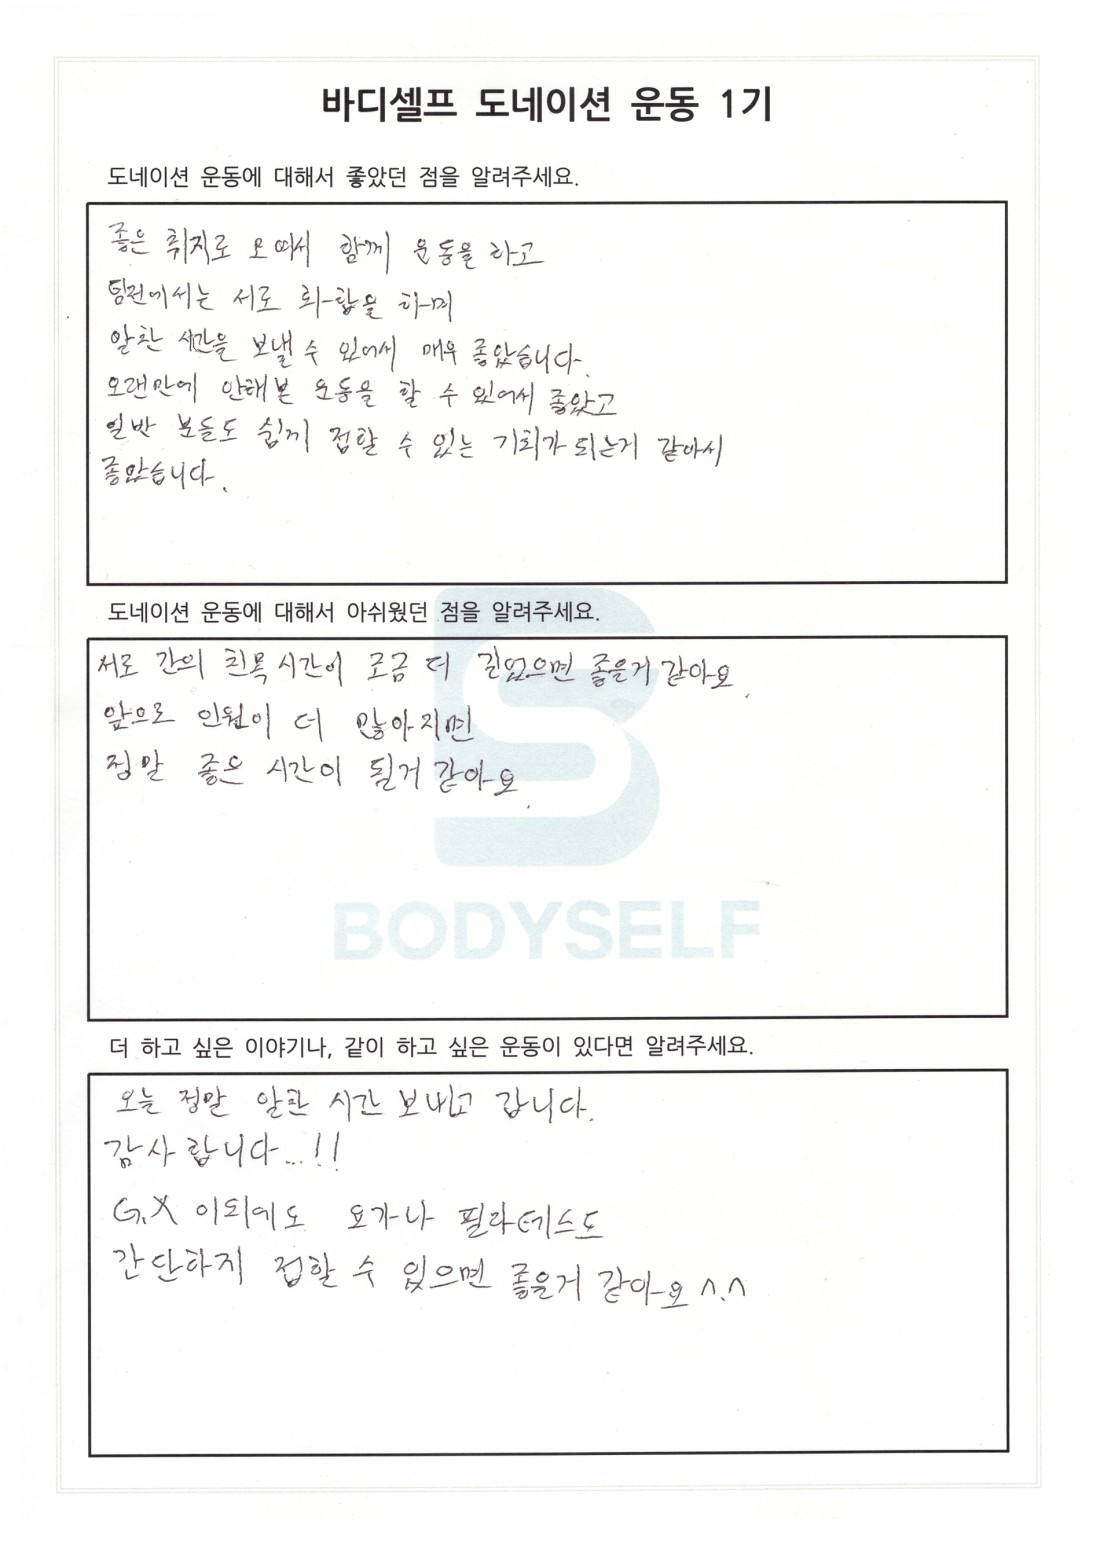 바디셀프 도네이션 운동 1기
도네이션 운동에 대해서 좋았던 점을 알려주세요.
좋은 취지로 모여서 함께 운동을 하고
팀전에서는 서로 화합을 하며
알찬 시간을 보낼 수 있어서 매우 좋았습니다.
오랜만에 안해본 운동을 할 수 있어서 좋았고
일반 분들도 쉽게 접할 수 있는 기회가 되는거 같아서
좋았습니다.
도네이션 운동에 대해서 아쉬웠던 점을 알려주세요.
서로 간의 친목 시간이 조금 더 길었으면 좋을거 같아요.
앞으로 인원이 더 많아지면
정말 좋은 시간이 될거 같아요.
BODYSELF
더 하고 싶은 이야기나, 같이 하고 싶은 운동이 있다면 알려주세요.
오늘 정말 알찬 시간 보내고 갑니다.
감사합니다...!!
G.X 이외에도 요가나 필라테스도
간단하지 접할 수 있으면 좋을거 같아요 ^.^